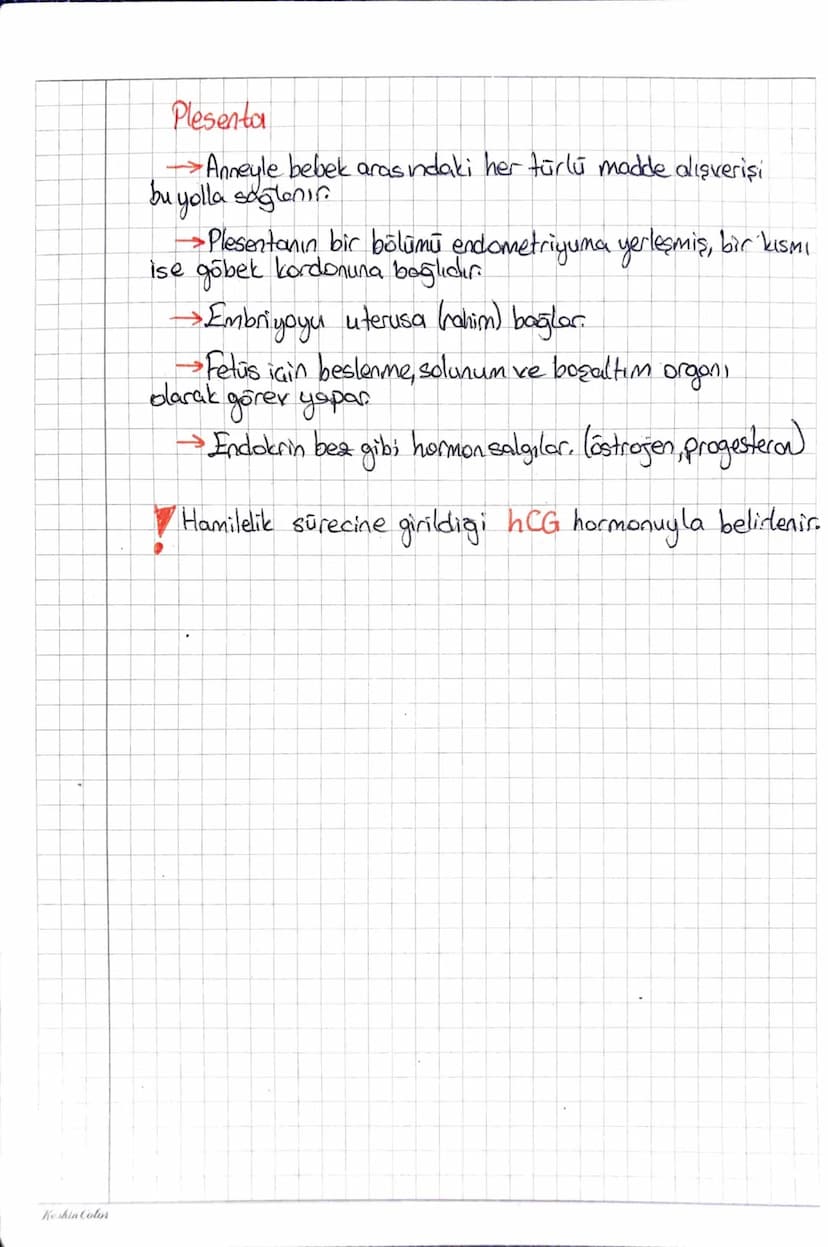 Plesenta
→Anneyle bebek arasındaki her türlü madde alışverişi
bu yolla sağlanır.
→Plesentanın bir bölümü endometriyuma yerleşmiş, bir kısmı
ise göbek kordonuna bağlıdır.
→Embriyoyu uterusa (rahim) bağlar.
→Fetüs için beslenme, solunum ve boşaltım organı
olarak görev yapar.
→Endokrin bez gibi hormon salgılar. (östrojen, progesteron)
! Hamilelik sürecine girildiği hCG hormonuyla belirlenir.
KeskinColor